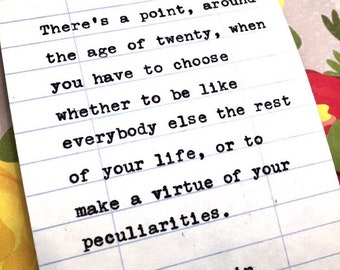 There's a point, around
the age of twenty, when
you have to choose
whether to be like
everybody else the rest
of your life, or to
make a virtue of your
peculiarities.